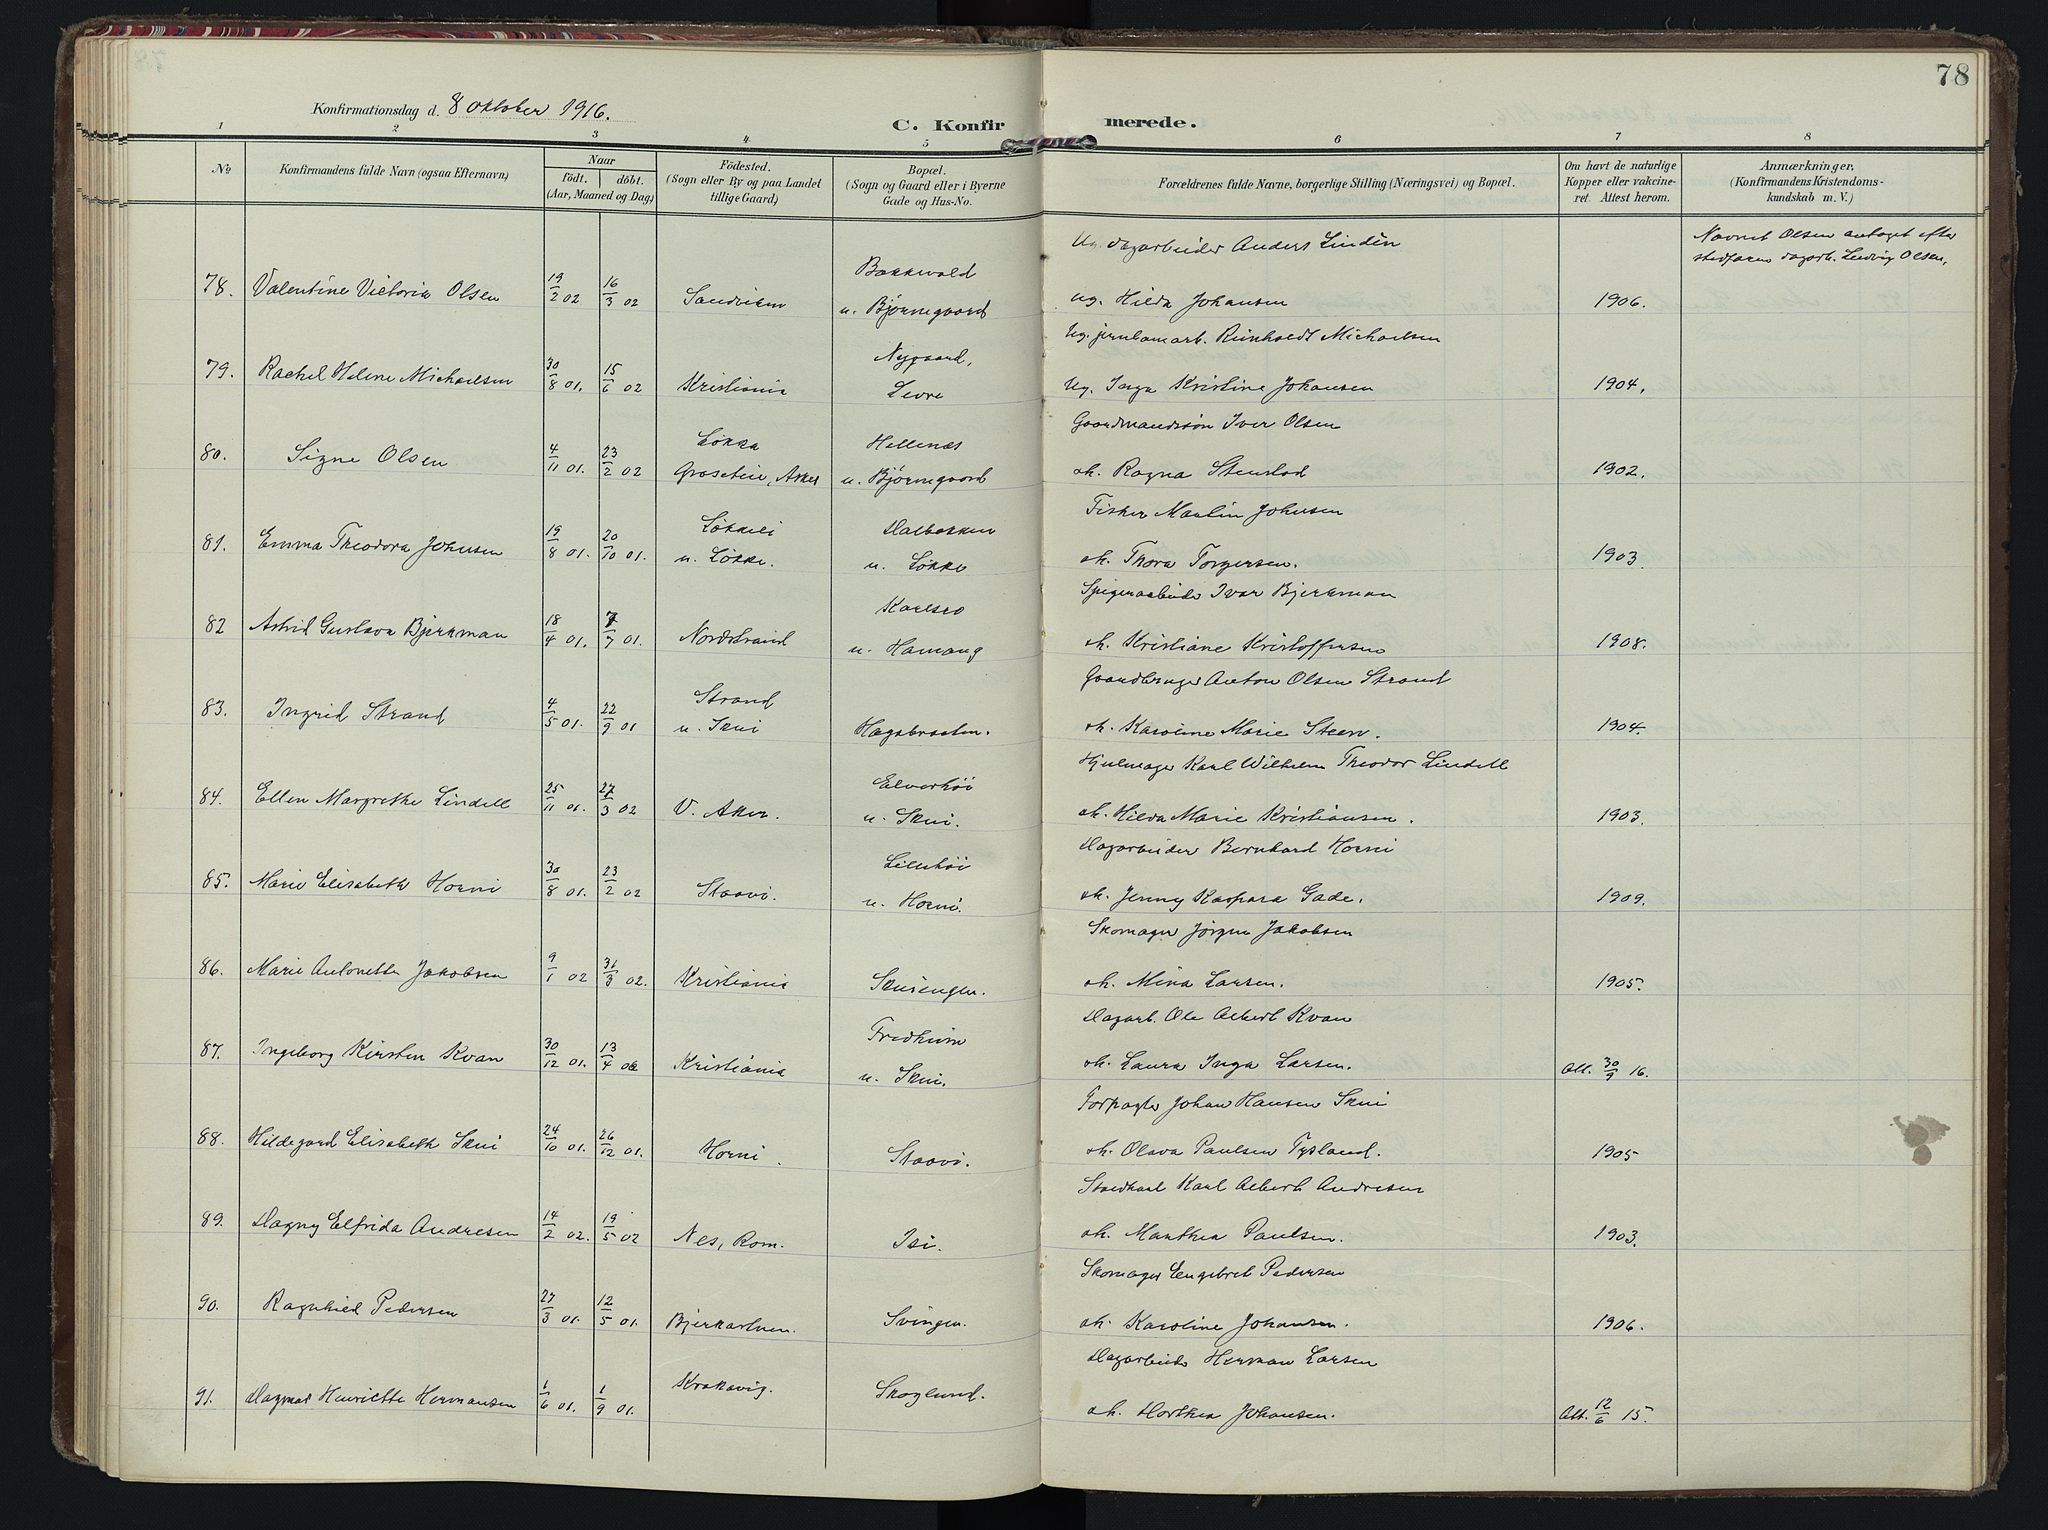 78
Konfirmationsdag d. 8 Oktober 1916.
C. Konfirmerede.
1 2 3 4 5 6 7 8
No
Konfirmandens fulde Navn (ogsaa Efternavn)
Naar
födt. döbt.
(Aar, Maaned og Dag)
Födested.
(Sogn eller By og paa Landet
tillige Gaard)
Bopæl.
(Sogn og Gaard eller i Byerne
Gade og Hus-No.
Forældrenes fulde Navne, borgerlige Stilling (Næringsvei) og Bopæl.
Om havt de naturlige
Kopper eller vakcine-
ret. Attest herom.
Anmærkninger,
(Konfirmandens Kristendoms-
kundskab m. V.)
Ug. dagarbeider Anders Lindén
Navnet Olsen antaget efter
stedfaren dagarb. Ludvig Olsen,
Bakkevold
78. Valentine Victoria Olsen 19/2 02 16/3 02 Sandviken u. Bjørnegaard ug. Hilda Johansen 1906.
Nygaard, Ug. jernbanearb. Reinholdt Michaelsen
79. Rachel Helene Michaelsen 30/8 01. 15/6 02 Kristiania Levre Ug. Inga Kristine Johansen 1904,
Løkka Hellenes Gaardmandssøn Iver Olsen
80. Signe Olsen 4/11 01. 23/2 02 Groseteie, Asker u. Bjørnegaard oh. Ragna Stenstad 1902.
Løkkeli Dalbakken Fisker Martin Johnsen
81. Emma Theodora Johnsen 19/8 01. 20/10 01. u. Løkke. u. Løkke oh. Thora Torgersen. 1903
Karlsro Spigerarbeider Ivar Bjerkman
82 Astrid Gustava Bjerkman 18/4 01. 7/7 01. Nordstrand u. Hamang oh. Kristiane Kristoffersen 1908.
Strand Gaardbruger Anton Olsen Strand
83. Ingrid Strand 4/5 01. 22/9 01 u. Skui Hagabraaten. oh. Karoline Marie Steen. 1904.
Elverhöi Hjulmager Karl Wilhelm Theodor Lindell
84. Ellen Margrethe Lindell 25/11 01. /3 02 V. Aker. u. Skui. oh. Hilda Marie Kristiansen. 1903.
Lillehöi Dagarbeider Bernhard Horni
85. Marie Elisabeth Horni 30/8 01. 23/2 02 Staavi. u. Horni. oh. Jenny Kaspara Gade. 1909.
Skomager Jörgen Jakobsen
86. Marie Antonette Jakobsen 9/1 02 31/3 02. Kristiania Skuiengen. oh. Mina Larsen. 1905.
Fredheim Dagarb. Ole Albert Kvan
87. Ingeborg Kirsten Kvan 30/12 01. 13/4 02 Kristiania u. Skui. oh. Laura Inga Larsen. Att. 30/9 16.
Forpagter Johan Hansen Skui
88. Hildegard Elisabeth Skui 24/10 01. 26/12 01. Horni. Staavi. oh. Olava Paulsen Tysland. 1905
Staldkarl Karl Albert Andresen
89. Dagny Elfrida Andresen 14/2 02. 19/5 02 Nes, Rom. Isi. oh. Marthea Paulsen. 1903.
Skomager Engebret Pedersen
90. Ragnhild Pedersen 27/3 01. 12/5 01. Bjerkartuen. Svingen. oh. Karoline Johansen. 1906.
Dagarbeider Herman Larsen
91. Dagmar Henriette Hermansen 1/6 01. 1/9 01. Krakavig. Skoglund. oh. Dorthea Johansen. Att. 12/6 15.